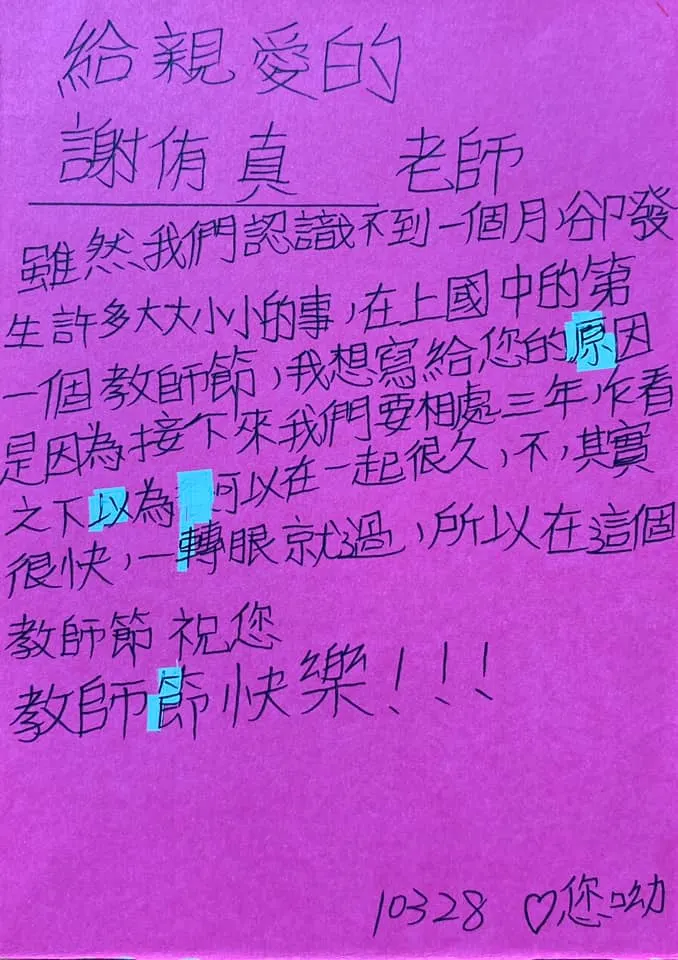 給親愛的
謝侑真 老師
雖然我們認識不到一個月,卻發
生許多大大小小的事,在上國中的第
一個教師節,我想寫給您的原因
是因為接下來我們要相處三年,乍看
之下以為可以在一起很久,不,其實
很快,一轉眼就過,所以在這個
教師節祝您
教師節快樂!!!
10328 ♡您呦